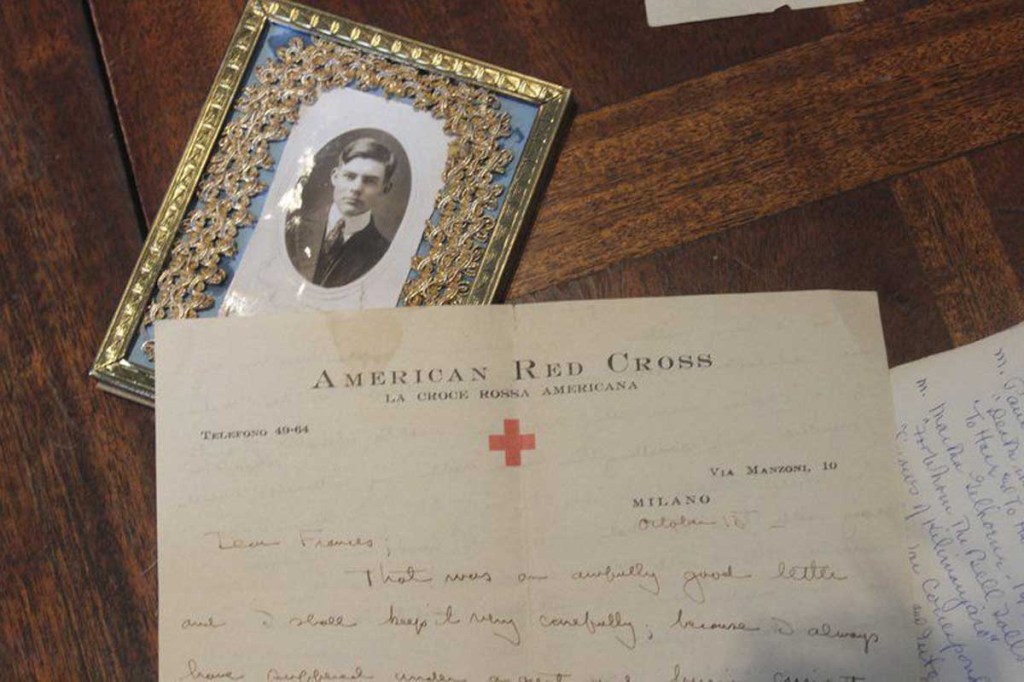 AMERICAN RED CROSS
LA CROCE ROSSA AMERICANA
TELEFONO 49-64
VIA MANZONI, 10
MILANO
October 18
Dear Frances;
That was an awfully good letter
and I shall keep it very carefully; because I always
have suffered under
M.
"Death in
"To Have and To Ha
M. Martha Gellhorn.
"For Whom The Bell Tolls
"Snows of Kilimanjaro"